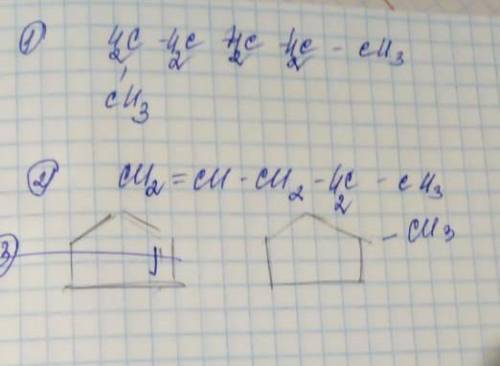 1) H₂C - H₂C H₂C H₂C - CH₃
CH₃
2) CH₂=CH-CH₂-H₂C-CH₃
3) - CH₃